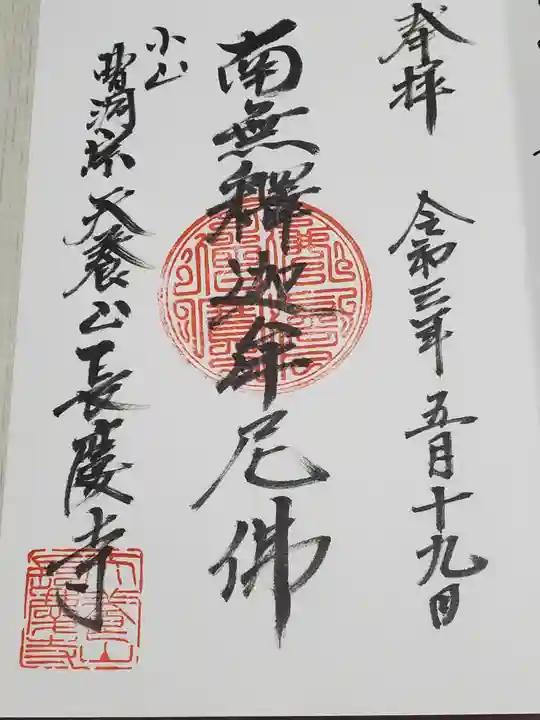 奉拝 令和三年 五月十九日
南無釋迦牟尼佛
小山
曹洞宗 天養山 長慶寺